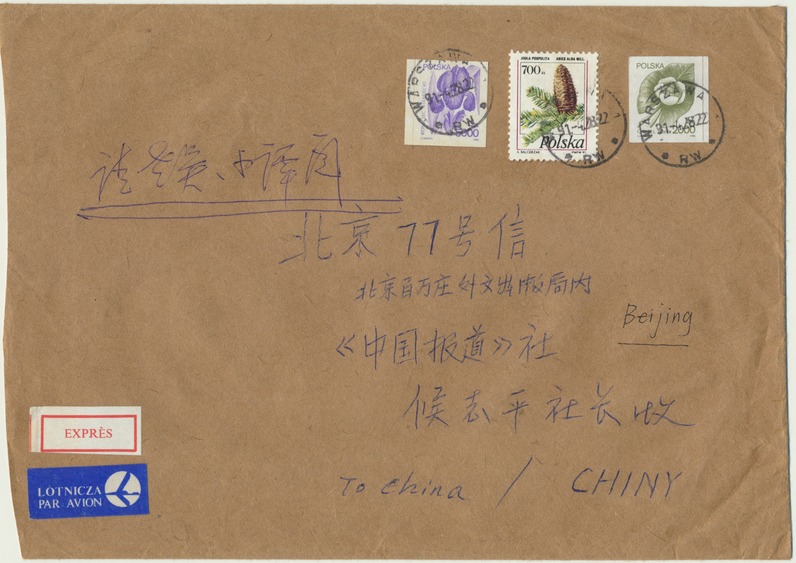 POLSKA
5000
JODŁA POSPOLITA ABIES ALBA MILL.
700 zł
Polska
POLSKA
2000
WARSZAWA 1
91-4.28.22
RW
WARSZAWA 1
91-4.28.22
RW
北京77号信
北京百万庄外文出版局内
《中国报道》社
Beijing
侯志平社长收
To China / CHINY
EXPRÈS
LOTNICZA
PAR AVION